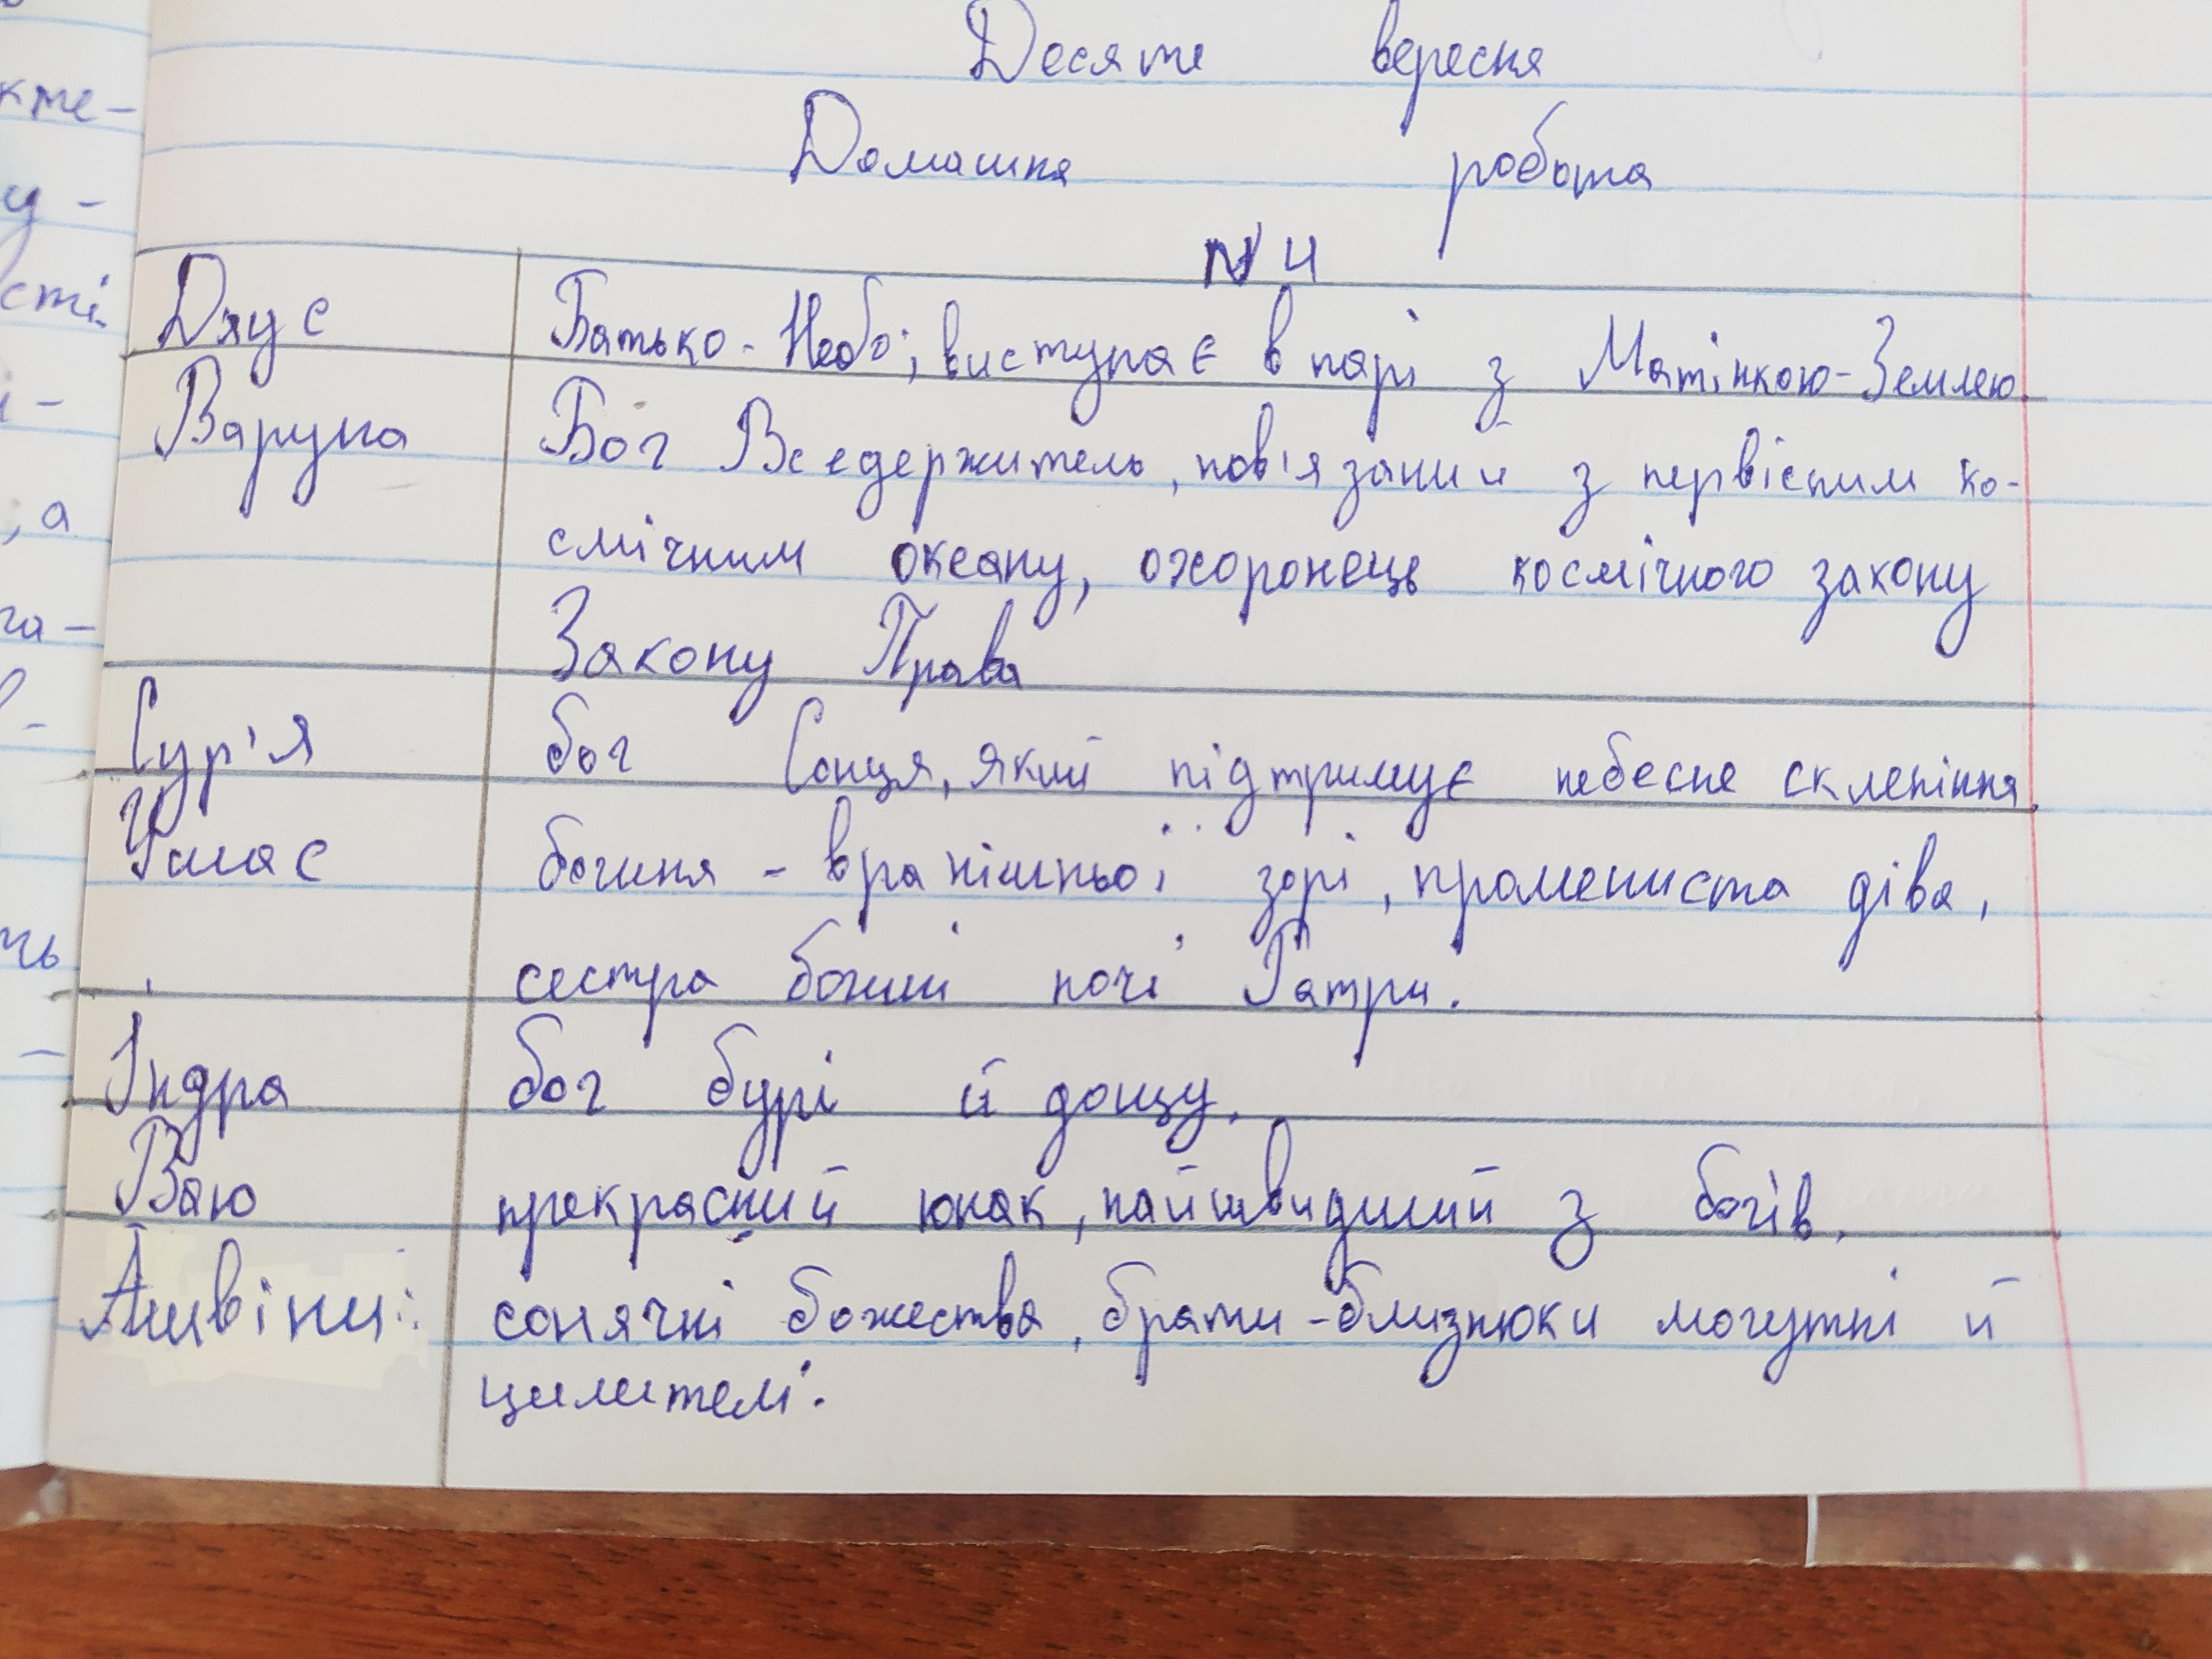 Десяте вересня
Домашня робота
№ 4
Дяус Батько-Небо; виступає в парі з Матінкою-Землею.
Варуна Бог Вседержитель, пов'язаний з первісним ко-
смічним океану, охоронець космічного закону
Закону Права
Сур'я бог Сонця, який підтримує небесне склепіння.
Ушас богиня - вранішньої зорі, промениста діва,
сестра богині ночі Ратри.
Індра бог бурі й дощу.
Ваю прекрасний юнак, найшвидший з богів.
Ашвіни: сонячні божества, брати-близнюки могутні й
цилителі.
кте-
у-
сті.
і-
, а
га-
ть